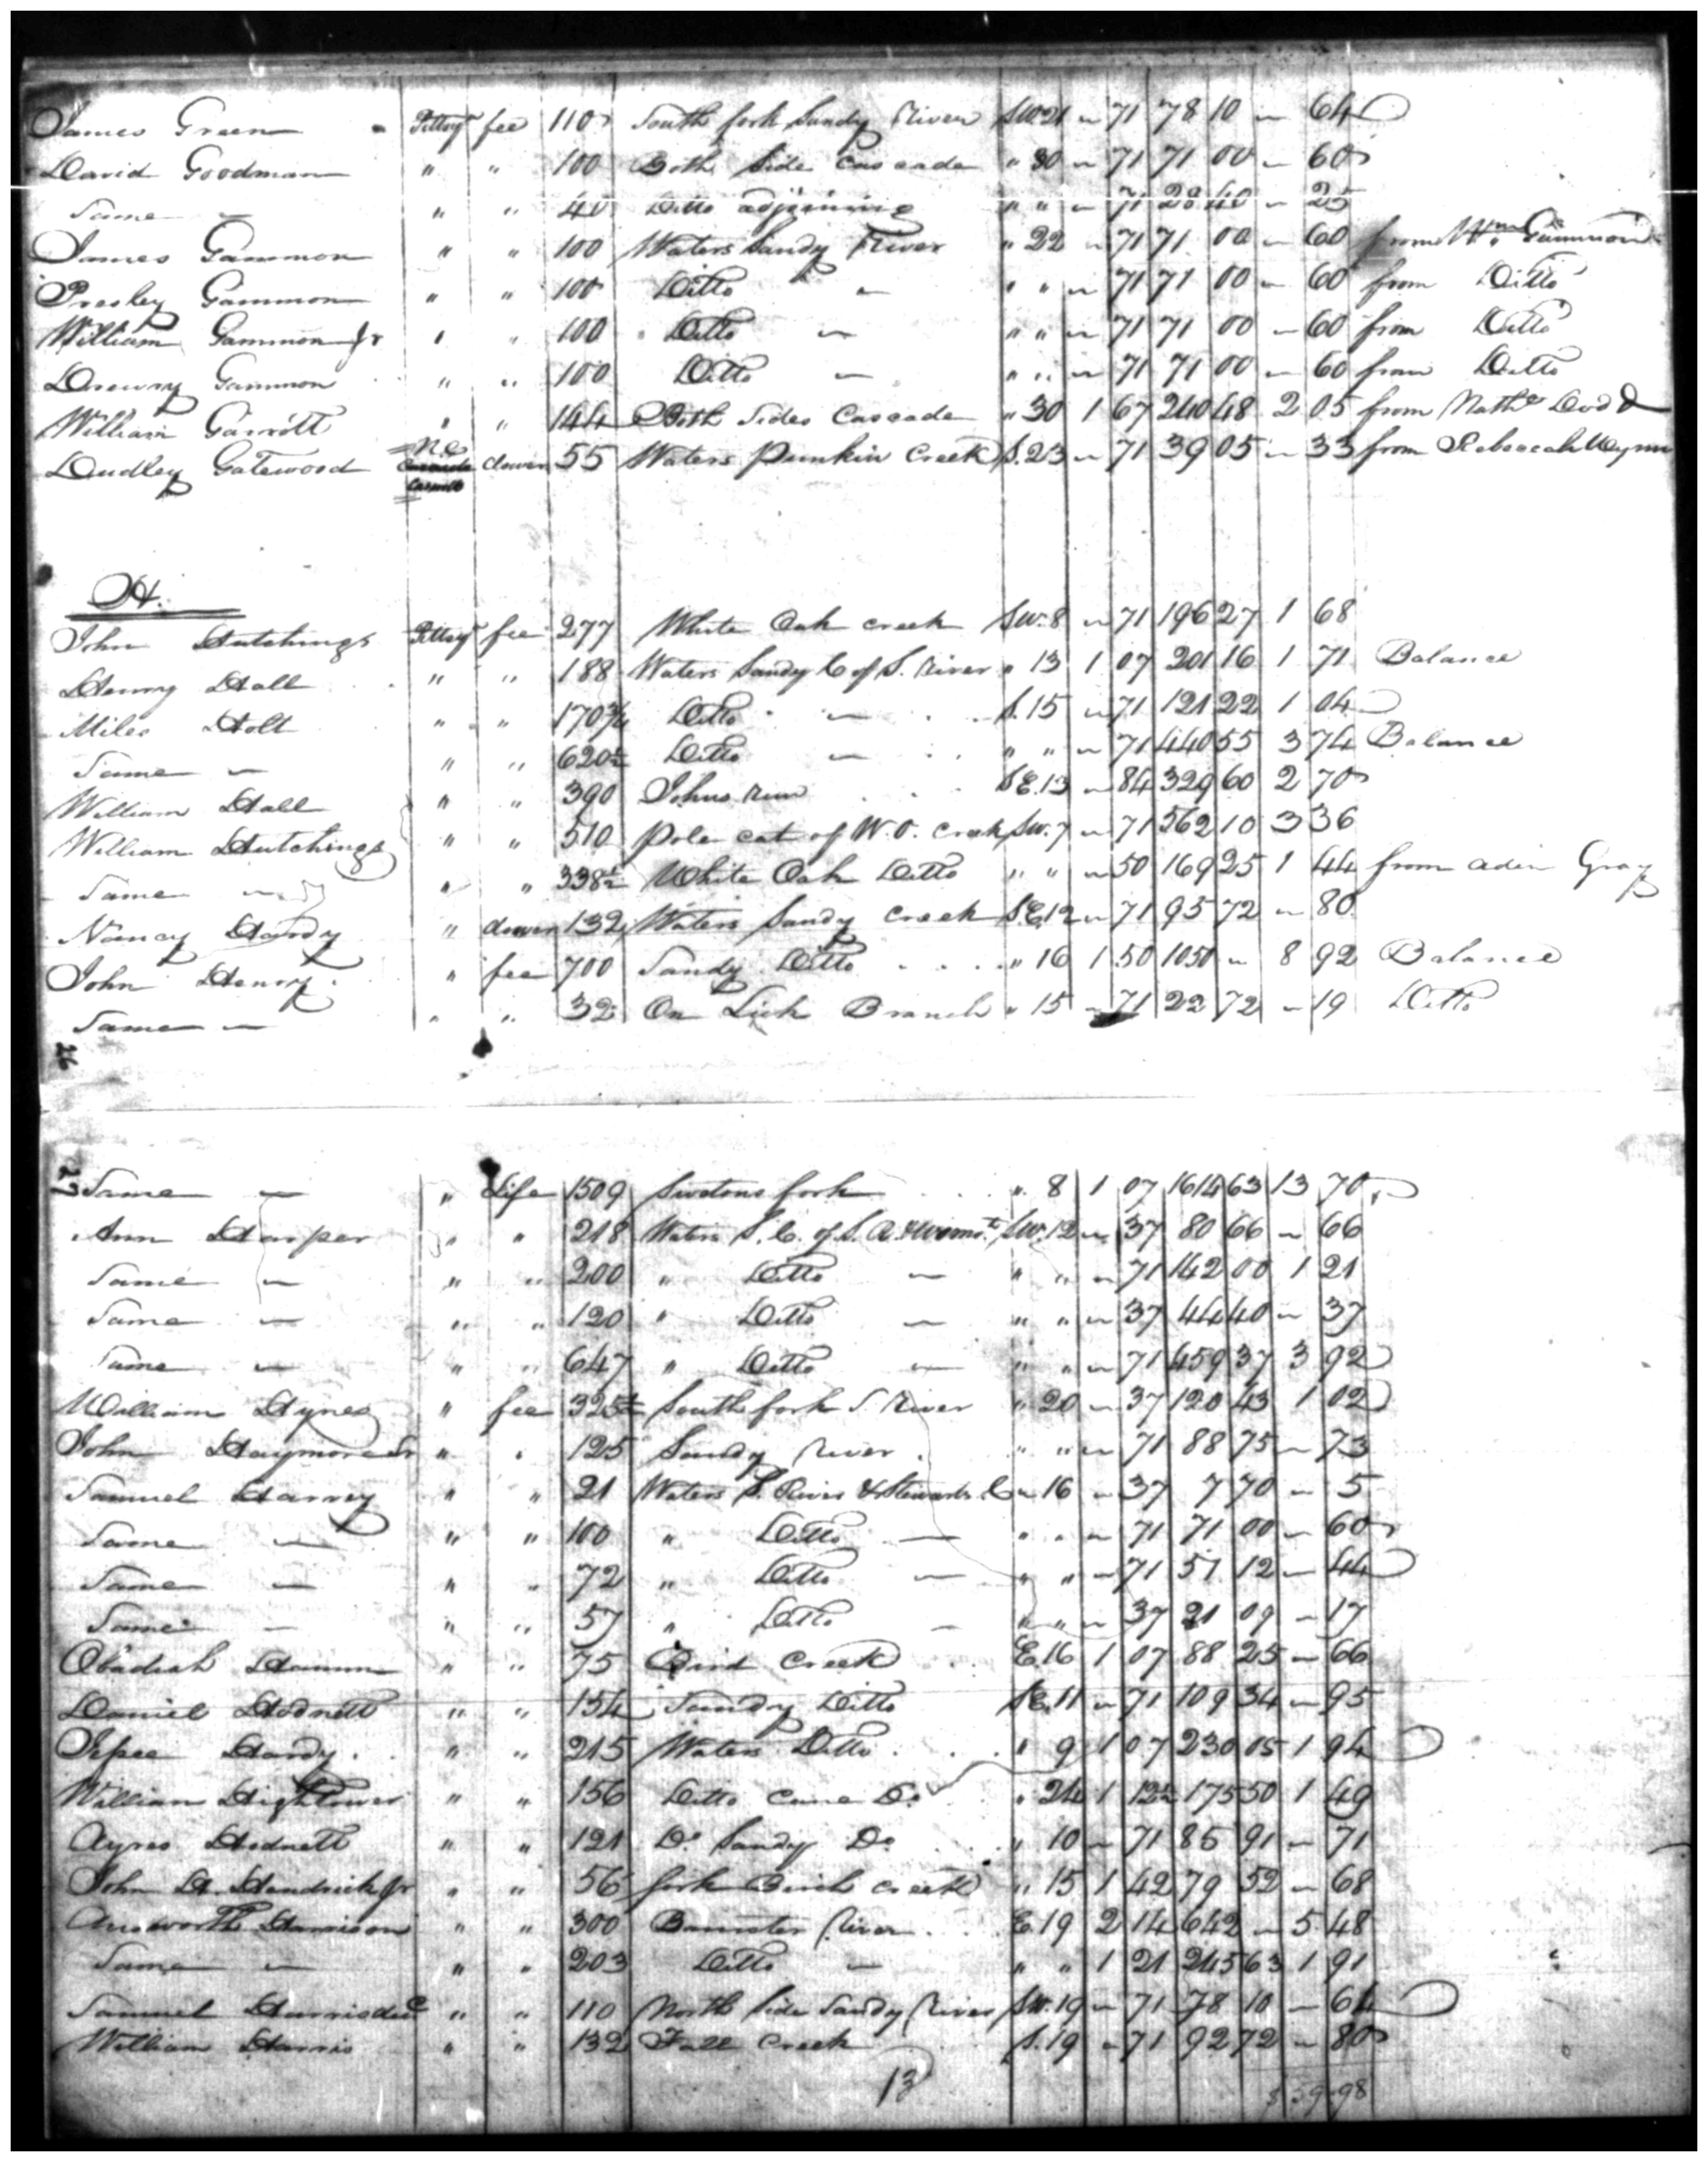 James Green Pittsy fee 110 South fork Sandy River SW 21 " 71 78 10 " 64
David Goodman " " 100 Both Side Cascade " 30 " 71 71 00 " 60
Same " " 40 Ditto adjoining " " " 71 28 40 " 25
James Gammon " " 100 Waters Sandy River " 22 " 71 71 00 " 60 from Wm Gammon
Presley Gammon " " 100 Ditto " " " 71 71 00 " 60 from Ditto
William Gammon Jr " " 100 Ditto " " " 71 71 00 " 60 from Ditto
Drewry Gammon " " 100 Ditto " " " 71 71 00 " 60 from Ditto
William Garrott " " 144 Both Sides Cascade " 30 1 67 240 48 2 05 from Nathl
Dudley Gatewood N.C. dower 55 Waters Punkin Creek S. 23 " 71 39 05 " 33 from Rebecah Wynn
H.
John Hutchings Pittsy fee 277 White Oak creek SW. 8 " 71 196 27 1 68
Henry Hall " " 188 Waters Sandy C of S. River " 13 1 07 201 16 1 71 Balance
Miles Holt " " 170 3/4 Ditto S. 15 " 71 121 22 1 04
Same " " 620 1/2 Ditto " " " 71 440 55 3 74 Balance
William Hall " " 390 Johns Run SE. 13 " 84 329 60 2 70
William Hutchings " " 510 Pole cat of W.O. Creek SW. 7 " 71 362 10 3 36
Same " " 338 1/2 White Oak Ditto " " " 50 169 25 1 44 from Aden Gray
Nancy Hardy " dower 132 Waters Sandy Creek SE. 12 " 71 93 72 " 80
John Henry " fee 700 Sandy Ditto " 16 1 50 1050 " 8 92 Balance
Same " " 32 On Lick Branch " 15 " 71 22 72 " 19 Ditto
26
27
Same " Life 1509 fork " 8 1 07 1614 63 13 70
Ann Harper " " 218 Waters S. C. of S. R. SW. 12 " 37 80 66 " 66
Same " " 200 " Ditto " " " 71 142 00 1 21
Same " " 120 " Ditto " " " 37 44 40 " 37
Same " " 647 " Ditto " " " 71 459 37 3 92
William Hynes " fee 325 1/2 South fork S River " 20 " 37 120 43 1 02
John Haymore Sr " " 125 Sandy River " " " 71 88 75 " 73
Samuel Harvey " " 21 Waters S. River & Stewarts C " 16 " 37 7 70 " 5
Same " " 100 " Ditto " " " 71 71 00 " 60
Same " " 72 " Ditto " " " 71 51 12 " 44
Same " " 57 " Ditto " " " 37 21 09 " 17
Obadiah Hamm " " 75 Bird Creek E. 16 1 07 88 25 " 66
Daniel Hodnett " " 154 Sandy Ditto SE. 11 " 71 109 34 " 95
Jesse Hardy " " 215 Waters Ditto " 9 1 07 230 05 1 94
William Hightower " " 156 Ditto Cane Do " 24 1 12 1/2 175 50 1 49
Ayres Hodnett " " 121 Do Sandy Do " 10 " 71 85 91 " 71
John H. Hendrick Jr " " 56 fork Birch Creek " 15 1 42 79 52 " 68
Ainsworth Harrison " " 300 Banister River E. 19 2 14 642 " 5 48
Same " " 203 Ditto " " 1 21 245 63 1 91
Samuel Harris decd " " 110 North Side Sandy River SW. 19 " 71 78 10 " 64
William Harris " " 132 Fall Creek S. 19 " 71 92 72 " 80
13
$ 59.98